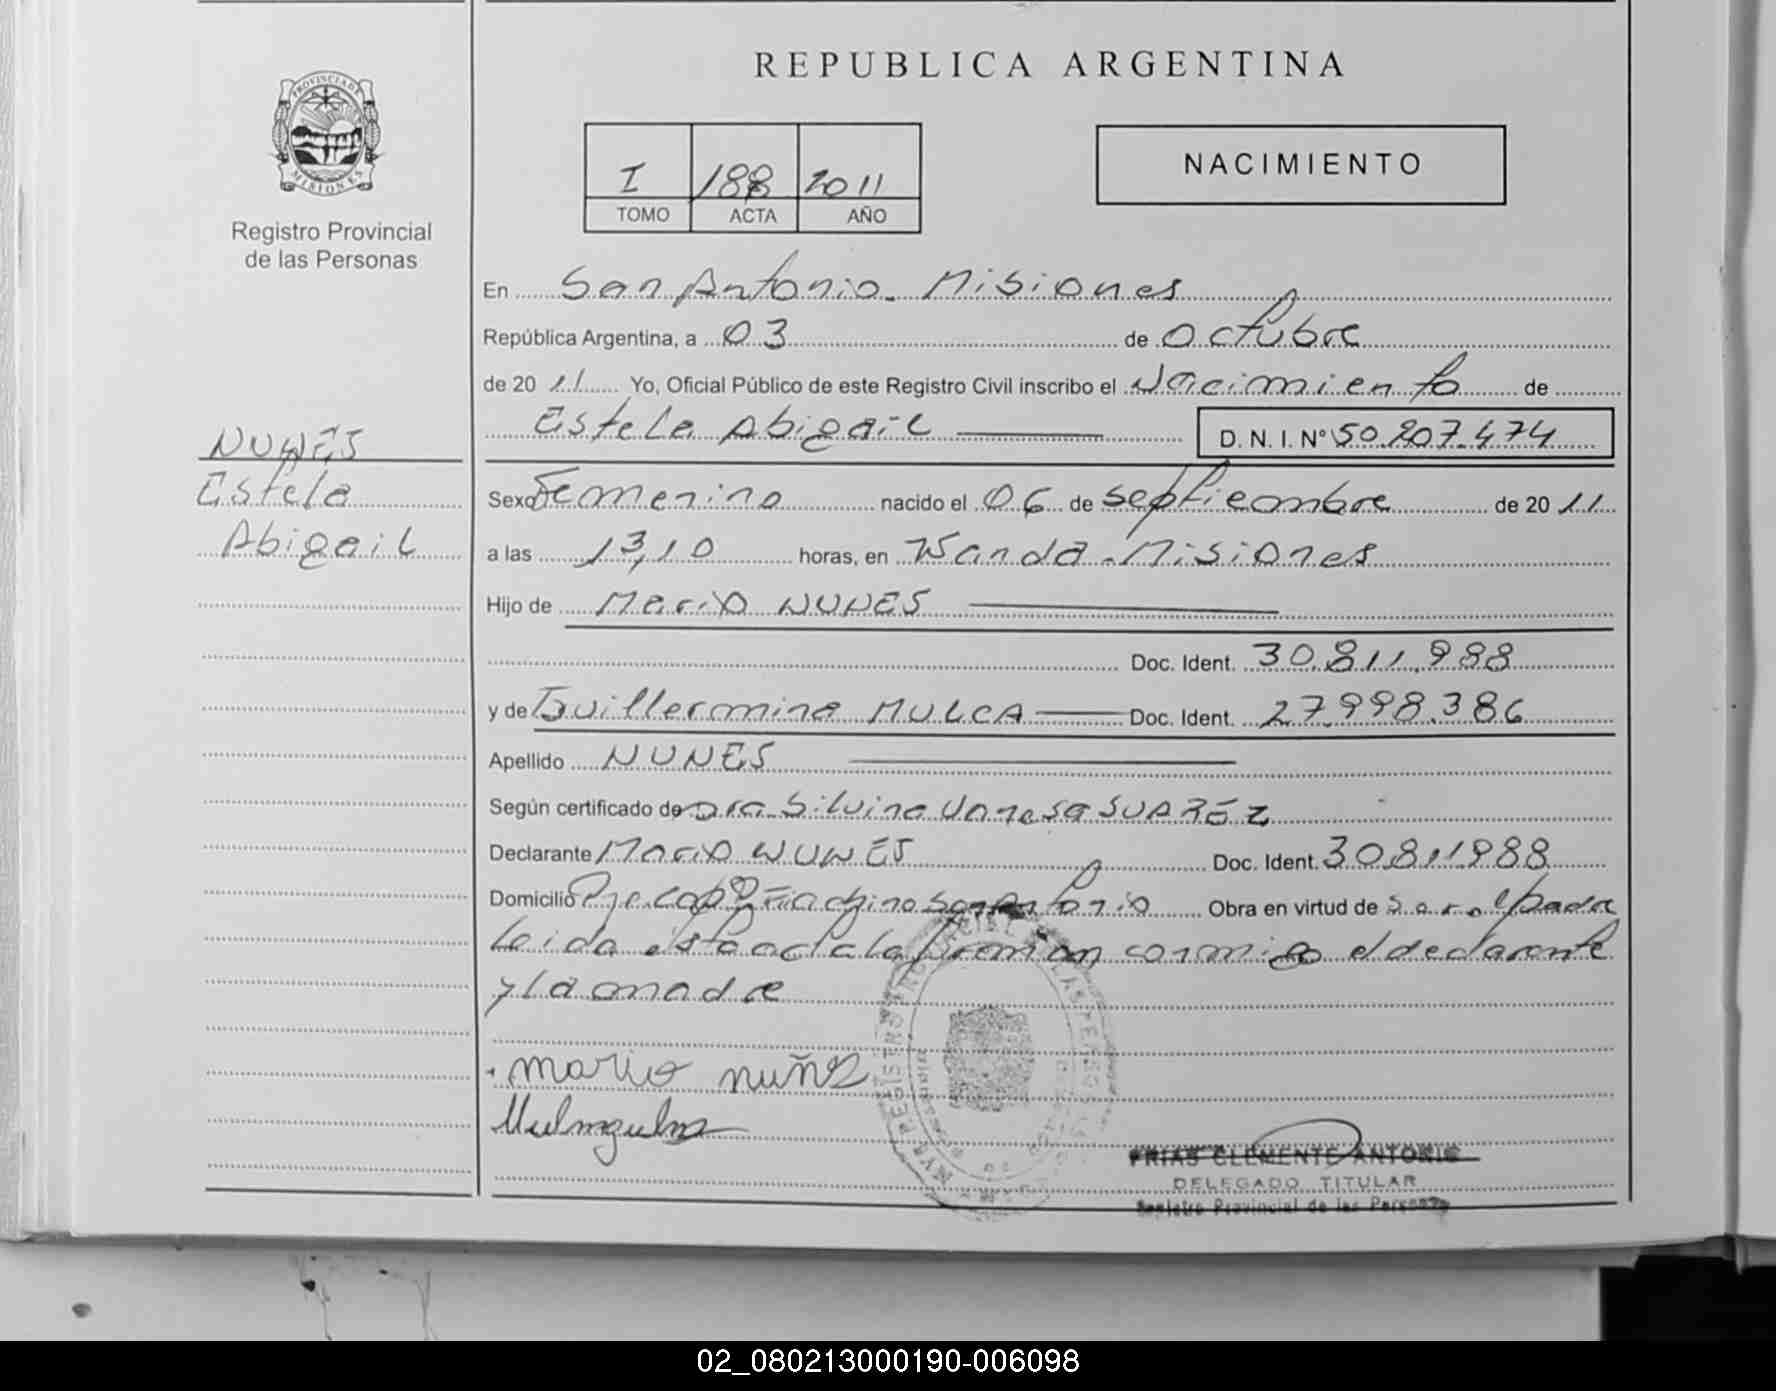 REPUBLICA ARGENTINA
PROVINCIA DE
MISIONES
Registro Provincial
de las Personas
I 188 2011
TOMO ACTA AÑO
NACIMIENTO
En San Antonio. Misiones
República Argentina, a 03 de Octubre
de 20 11 Yo, Oficial Público de este Registro Civil inscribo el Nacimiento de
Estela Abigail D. N. I. N° 50.207.474
NUNES
Estela
Abigail
Sexo Femenino nacido el 06 de septiembre de 20 11
a las 13,10 horas, en Wanda - Misiones
Hijo de Mario NUNES
Doc. Ident. 30.811.988
y de Guillermina MULCA Doc. Ident. 27.998.386
Apellido NUNES
Según certificado de Dra Silvina Vanesa SUAREZ
Declarante Mario NUNES Doc. Ident. 30.811.988
Domicilio San Antonio Obra en virtud de
Leida esta acta la firman conmigo el declarante
y la madre
mario nuñes
FRIAS CLEMENTE ANTONIO
DELEGADO TITULAR
Registro Provincial de las Personas
02_080213000190-006098